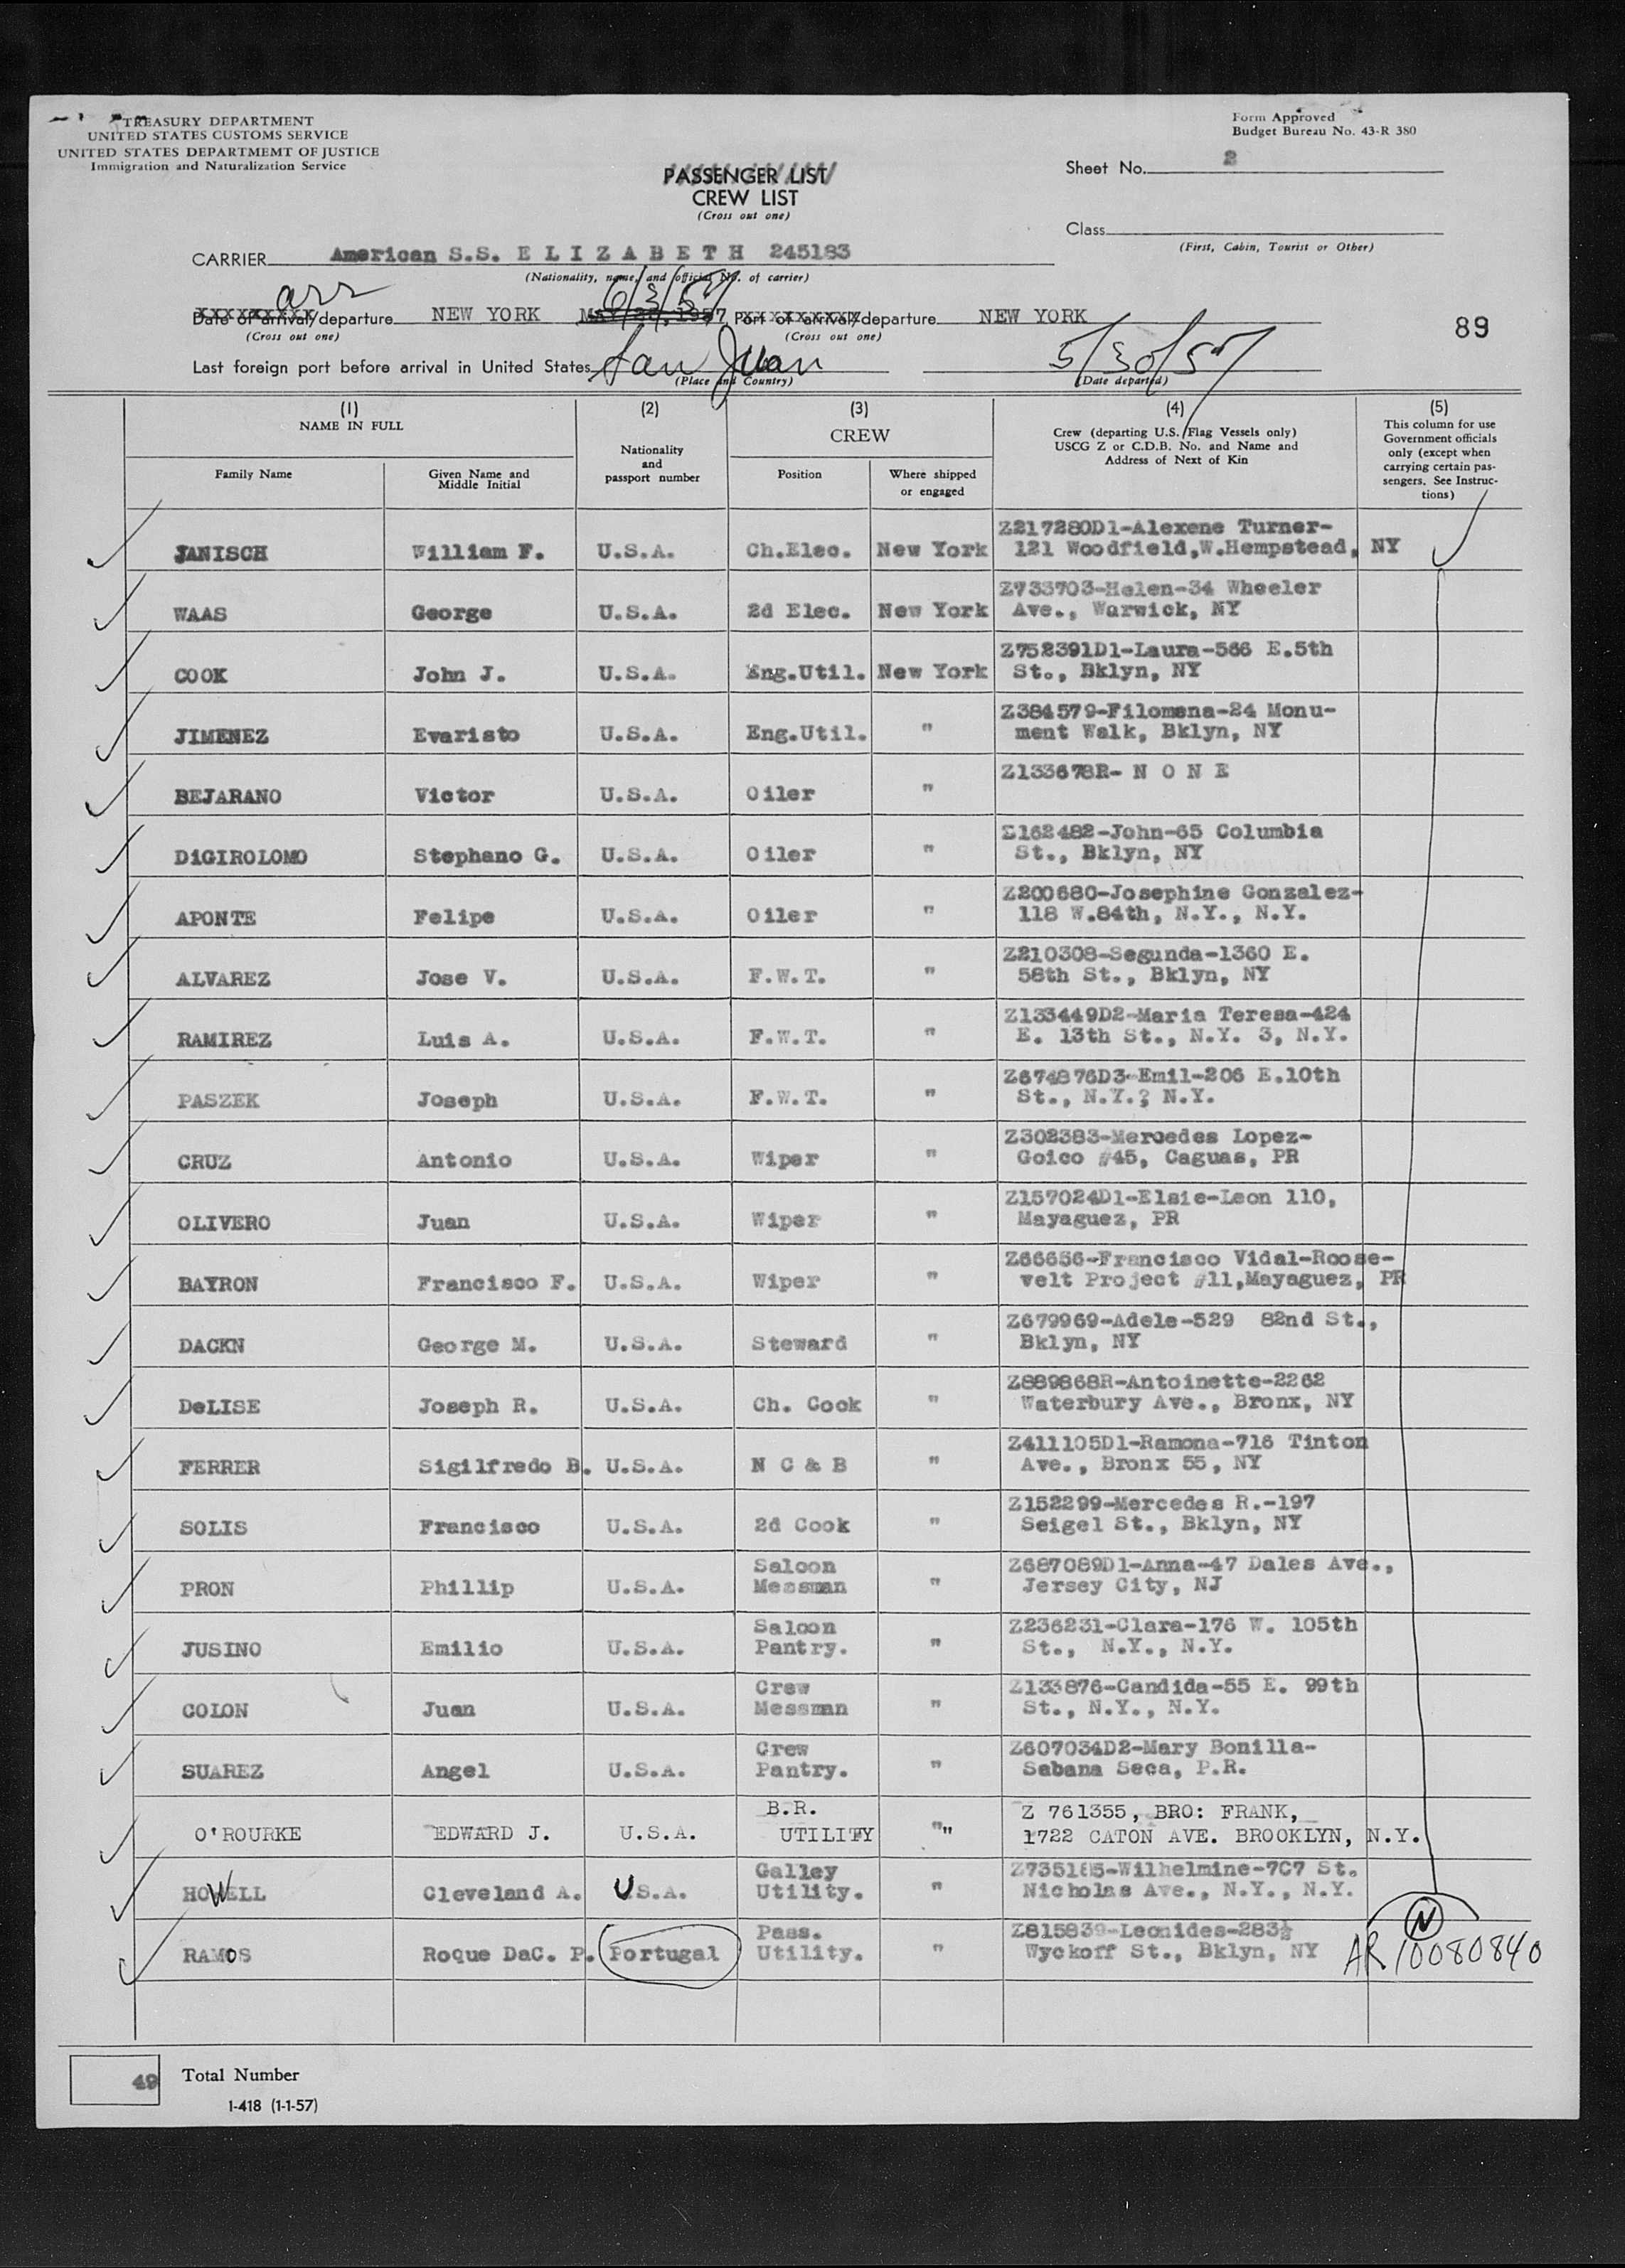 TREASURY DEPARTMENT
UNITED STATES CUSTOMS SERVICE
UNITED STATES DEPARTMEMT OF JUSTICE
Immigration and Naturalization Service
Form Approved
Budget Bureau No. 43-R 380
Sheet No. 2
PASSENGER LIST
CREW LIST
(Cross out one)
Class
(First, Cabin, Tourist or Other)
CARRIER American S.S. E L I Z A B E T H 245183
(Nationality, name, and official No. of carrier)
arr 6/3/57
Date of arrival/departure NEW YORK MAY 20, 1957 Port of arrival/departure NEW YORK
(Cross out one) (Cross out one)
89
Last foreign port before arrival in United States San Juan 5/30/57
(Place and Country) (Date departed)
(1) NAME IN FULL
Family Name
Given Name and Middle Initial
(2) Nationality and passport number
(3) CREW
Position
Where shipped or engaged
(4) Crew (departing U.S. Flag Vessels only) USCG Z or C.D.B. No. and Name and Address of Next of Kin
(5) This column for use Government officials only (except when carrying certain passengers. See Instructions)
JANISCH William F. U.S.A. Ch.Elec. New York Z217280D1-Alexene Turner-
121 Woodfield,W.Hempstead, NY
WAAS George U.S.A. 2d Elec. New York Z733703-Helen-34 Wheeler
Ave., Warwick, NY
COOK John J. U.S.A. Eng.Util. New York Z752391D1-Laura-566 E.5th
St., Bklyn, NY
JIMENEZ Evaristo U.S.A. Eng.Util. " Z384579-Filomena-24 Monu-
ment Walk, Bklyn, NY
BEJARANO Victor U.S.A. Oiler " Z133678R- N O N E
DiGIROLOMO Stephano G. U.S.A. Oiler " Z162482-John-65 Columbia
St., Bklyn, NY
APONTE Felipe U.S.A. Oiler " Z200680-Josephine Gonzalez-
118 W.84th, N.Y., N.Y.
ALVAREZ Jose V. U.S.A. F.W.T. " Z210308-Segunda-1360 E.
58th St., Bklyn, NY
RAMIREZ Luis A. U.S.A. F.W.T. " Z133449D2-Maria Teresa-424
E. 13th St., N.Y. 3, N.Y.
PASZEK Joseph U.S.A. F.W.T. " Z674876D3-Emil-206 E.10th
St., N.Y., N.Y.
CRUZ Antonio U.S.A. Wiper " Z302383-Mercedes Lopez-
Goico #45, Caguas, PR
OLIVERO Juan U.S.A. Wiper " Z157024D1-Elsie-Leon 110,
Mayaguez, PR
BAYRON Francisco F. U.S.A. Wiper " Z66656-Francisco Vidal-Roose-
velt Project #11,Mayaguez, PR
DACKN George M. U.S.A. Steward " Z679969-Adele-529 82nd St.,
Bklyn, NY
DeLISE Joseph R. U.S.A. Ch. Cook " Z889868R-Antoinette-2262
Waterbury Ave., Bronx, NY
FERRER Sigilfredo B. U.S.A. N C & B " Z411105D1-Ramona-716 Tinton
Ave., Bronx 55, NY
SOLIS Francisco U.S.A. 2d Cook " Z152299-Mercedes R.-197
Seigel St., Bklyn, NY
PRON Phillip U.S.A. Saloon Messman " Z687089D1-Anna-47 Dales Ave.,
Jersey City, NJ
JUSINO Emilio U.S.A. Saloon Pantry. " Z236231-Clara-176 W. 105th
St., N.Y., N.Y.
COLON Juan U.S.A. Crew Messman " Z133876-Candida-55 E. 99th
St., N.Y., N.Y.
SUAREZ Angel U.S.A. Crew Pantry. " Z607034D2-Mary Bonilla-
Sabana Seca, P.R.
O'ROURKE EDWARD J. U.S.A. B.R. UTILITY "" Z 761355, BRO: FRANK,
1722 CATON AVE. BROOKLYN, N.Y.
HOWELL Cleveland A. U.S.A. Galley Utility. " Z735185-Wilhelmine-707 St.
Nicholas Ave., N.Y., N.Y.
RAMOS Roque DaC. P. Portugal Pass. Utility. " Z815839-Leonides-283½
Wyckoff St., Bklyn, NY
N
AR 10080840
49 Total Number
I-418 (1-1-57)